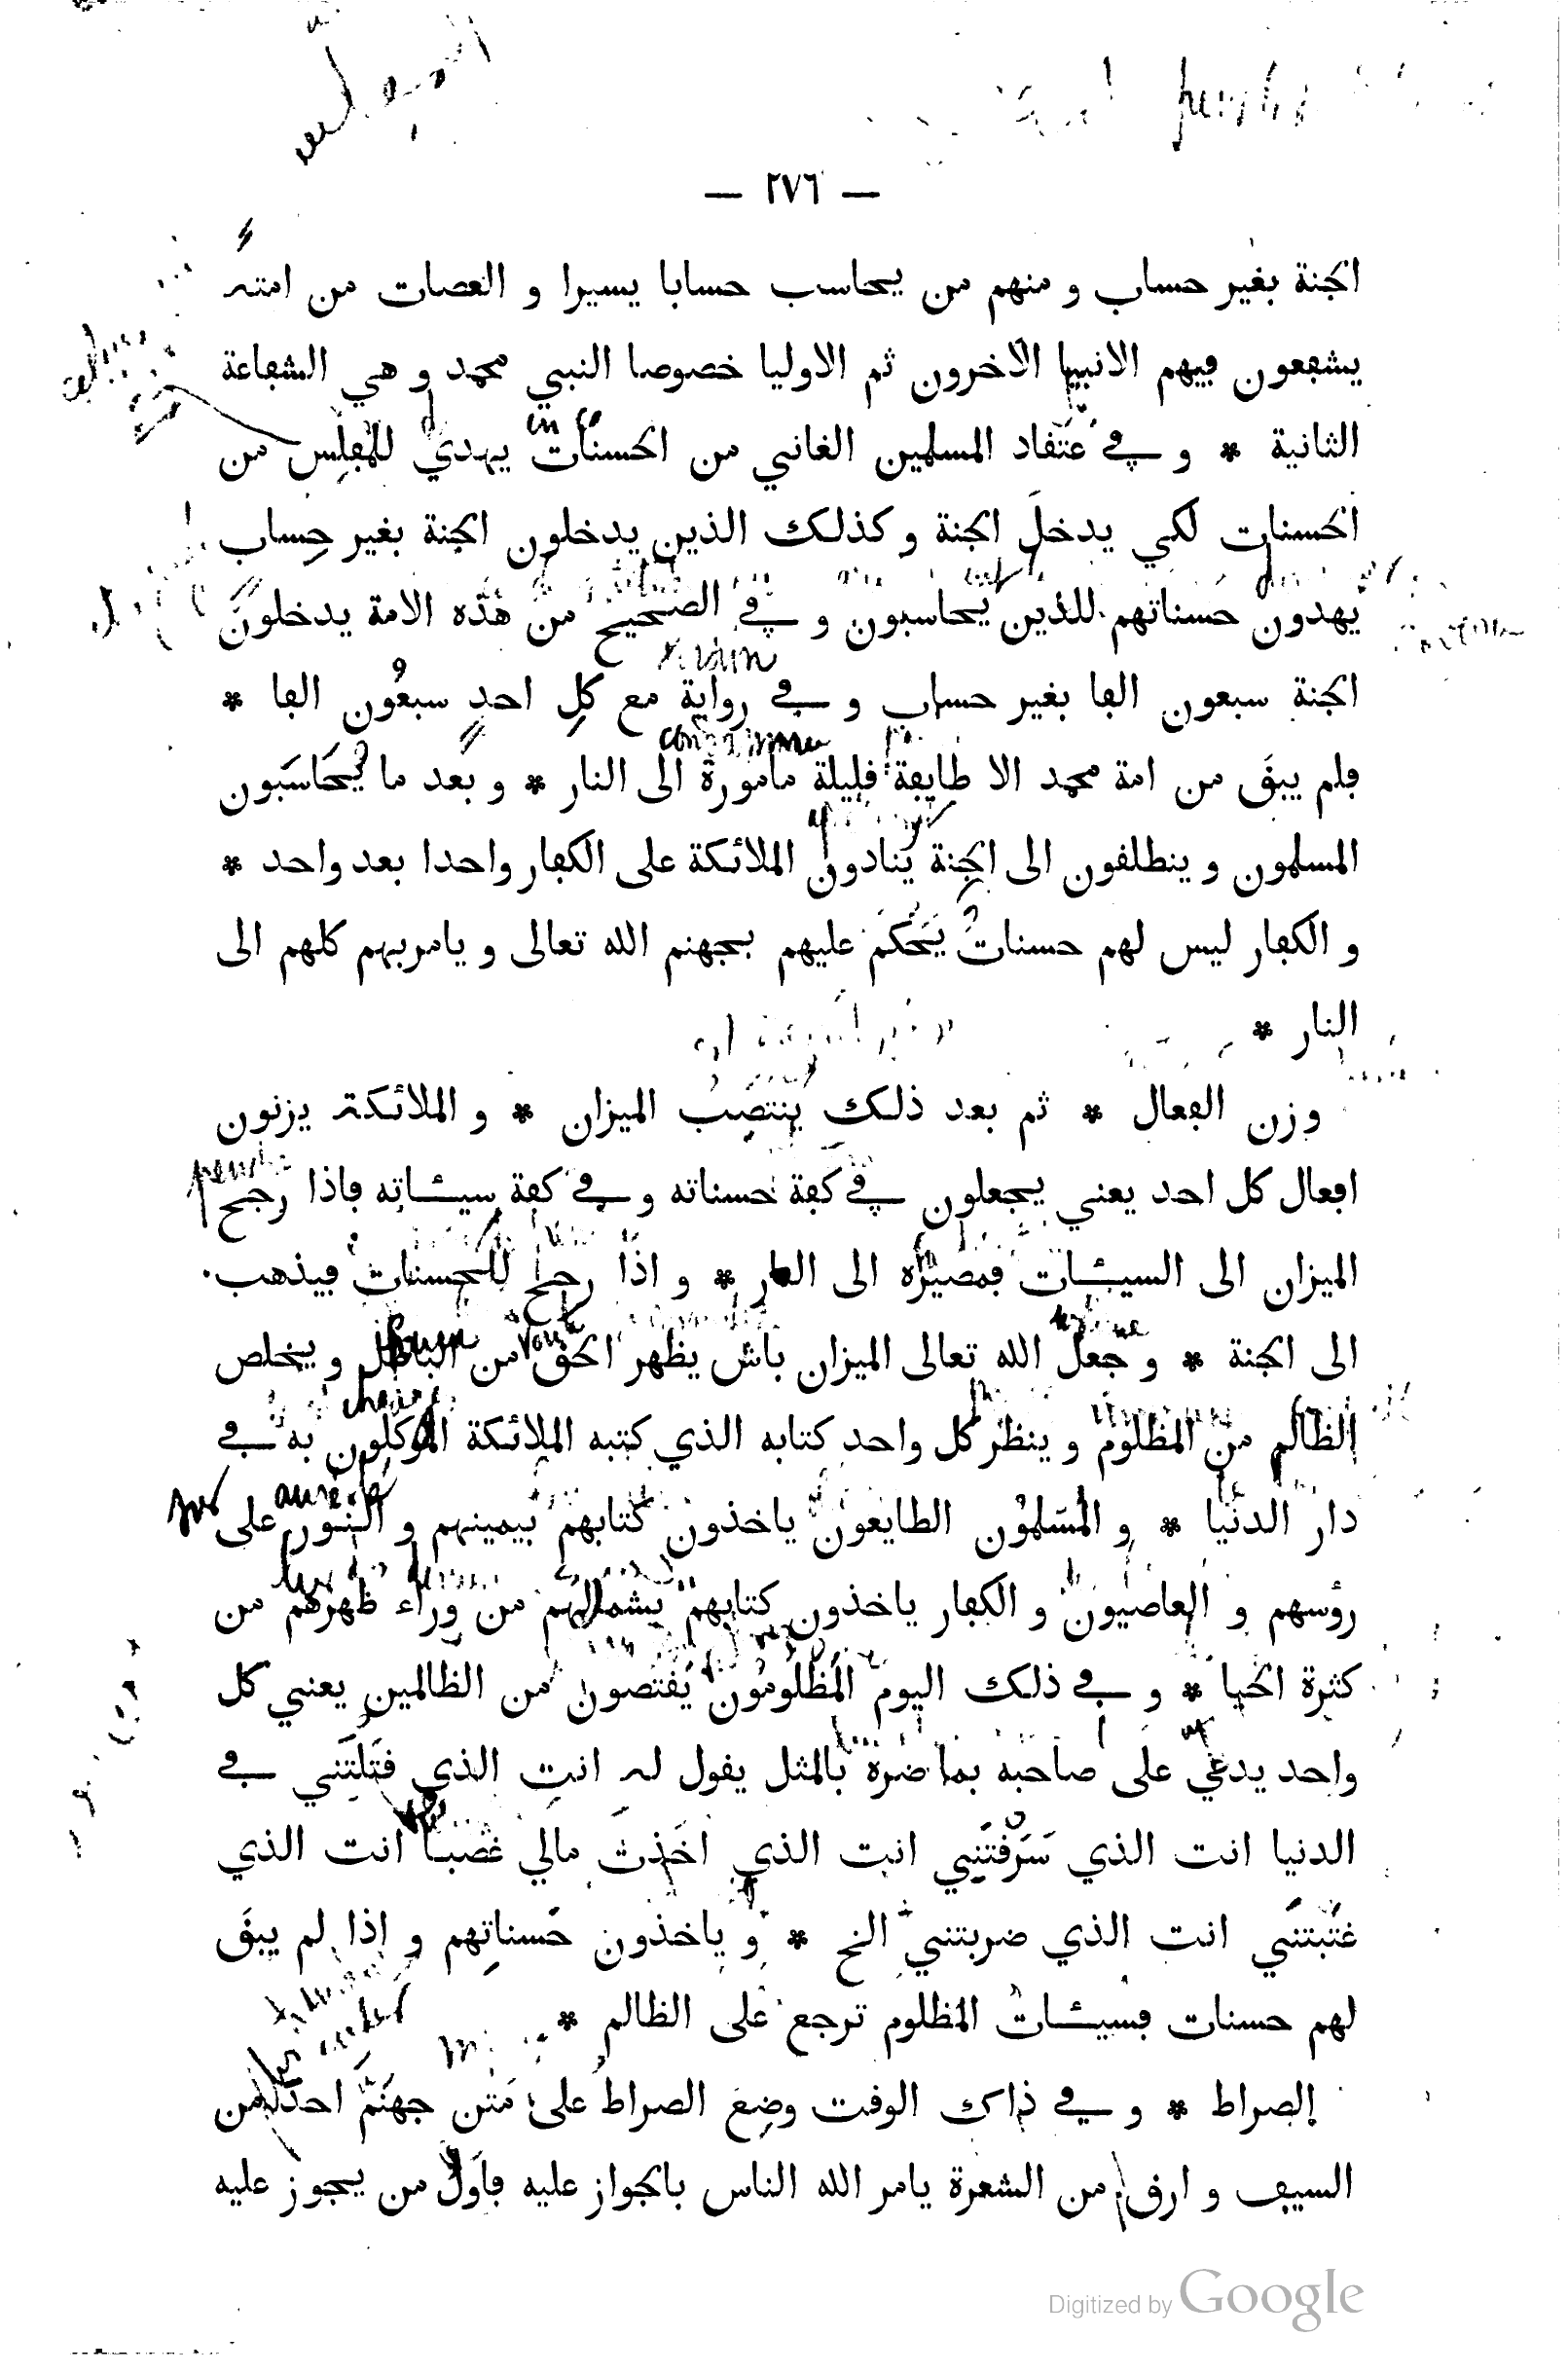 — ٢٧٦ —
الجنة بغير حساب و منهم من يحاسب حسابا يسيرا و العصات من امته
يشفعون فيهم الانبيا الاخرون ثم الاوليا خصوصا النبي محمد و هي الشفاعة
الثانية * و في عتقاد المسلمين الغاني من الحسنات يهدي للمفلس من
الحسنات لكي يدخل الجنة و كذلك الذين يدخلون الجنة بغير حساب
يهدون حسناتهم للذين يحاسبون و في الصحيح من هذه الامة يدخلون
الجنة سبعون الفا بغير حساب و في رواية مع كل احد سبعون الفا *
فلم يبق من امة محمد الا طايفة قليلة مامورة الى النار * و بعد ما يحاسبون
المسلمون و ينطلقون الى الجنة ينادون الملائكة على الكفار واحدا بعد واحد *
و الكفار ليس لهم حسنات يحكم عليهم بجهنم الله تعالى و يامر بهم كلهم الى
النار *
وزن الفعال * ثم بعد ذلك ينتصب الميزان * و الملائكة يزنون
افعال كل احد يعني يجعلون في كفة حسناته و في كفة سيئاته فاذا رجح
الميزان الى السيئات فمصيره الى النار * و اذا رجح للحسنات فيذهب
الى الجنة * و جعل الله تعالى الميزان باش يظهر الحق من الباطل و يخلص
الظالم من المظلوم و ينظر كل واحد كتابه الذي كتبه الملائكة الموكلون به في
دار الدنيا * و المسلمون الطايعون ياخذون كتابهم بيمينهم و النور على
رؤسهم و العاصيون و الكفار ياخذون كتابهم بشمالهم من وراء ظهرهم من
كثرة الحيا * و في ذلك اليوم المظلومون يقتصون من الظالمين يعني كل
واحد يدعي على صاحبه بما ضره بالمثل يقول له انت الذي قتلتني في
الدنيا انت الذي سرقتني انت الذي اخذت مالي غصبا انت الذي
غتبتني انت الذي ضربتني الخ * و ياخذون حسناتهم و اذا لم يبق
لهم حسنات فسيئات المظلوم ترجع على الظالم *
الصراط * و في ذاك الوقت وضع الصراط على متن جهنم احد من
السيف و ارق من الشعرة يامر الله الناس بالجواز عليه فاول من يجوز عليه
Digitized by Google